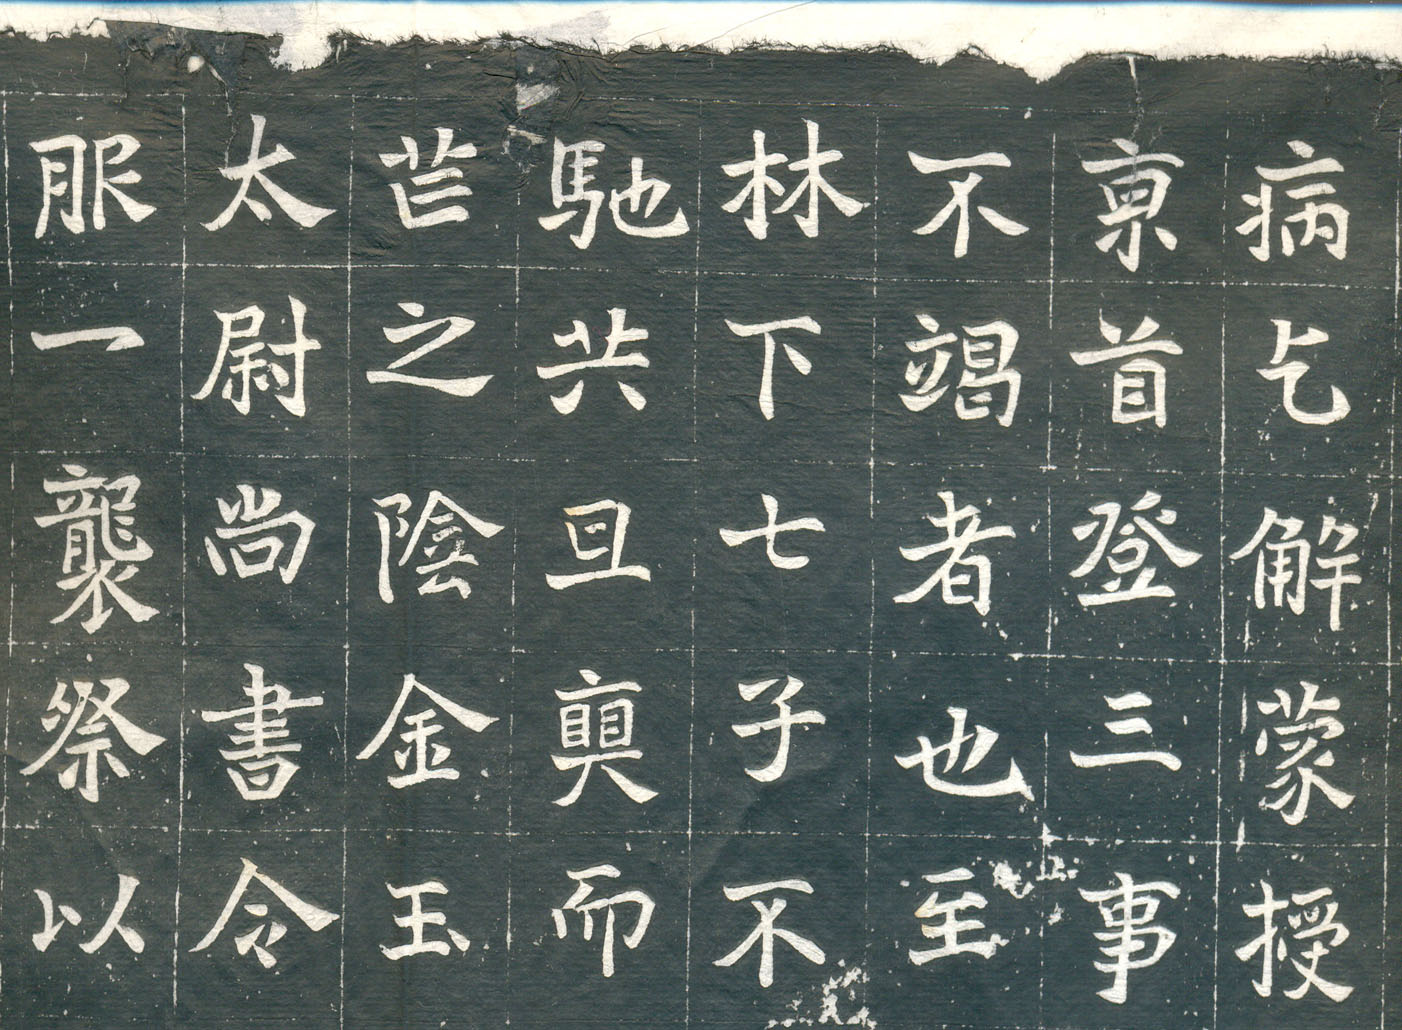 病乞解蒙授
首登三事
不竭者也至
林下七子不
馳共旦興而
芒之陰金玉
太尉尚書令
服一襲祭以